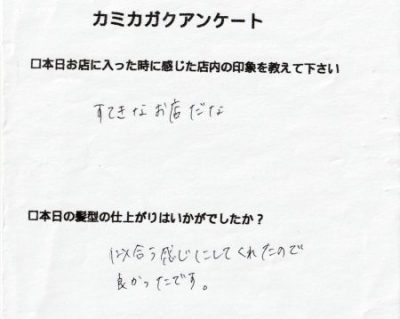 カミカガクアンケート
□本日お店に入った時に感じた店内の印象を教えて下さい
すてきなお店だな
□本日の髪型の仕上がりはいかがでしたか？
似合う感じにしてくれたので
良かったです。